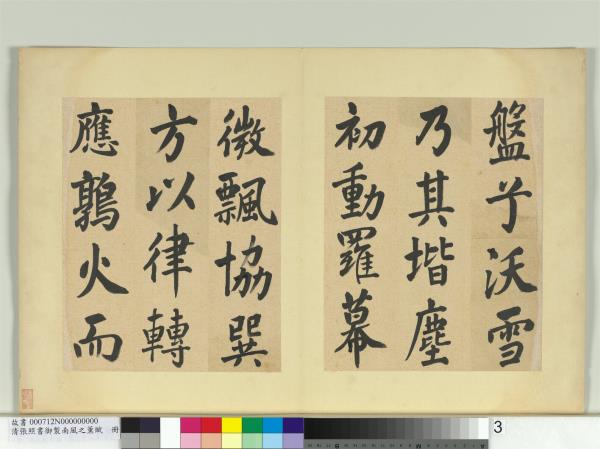 盤兮沃雪
乃其堦塵
初動羅幕
微飄協巽
方以律轉
應鶉火而
故書 000712N000000000
清張照書御製南風之薰賦 冊
3